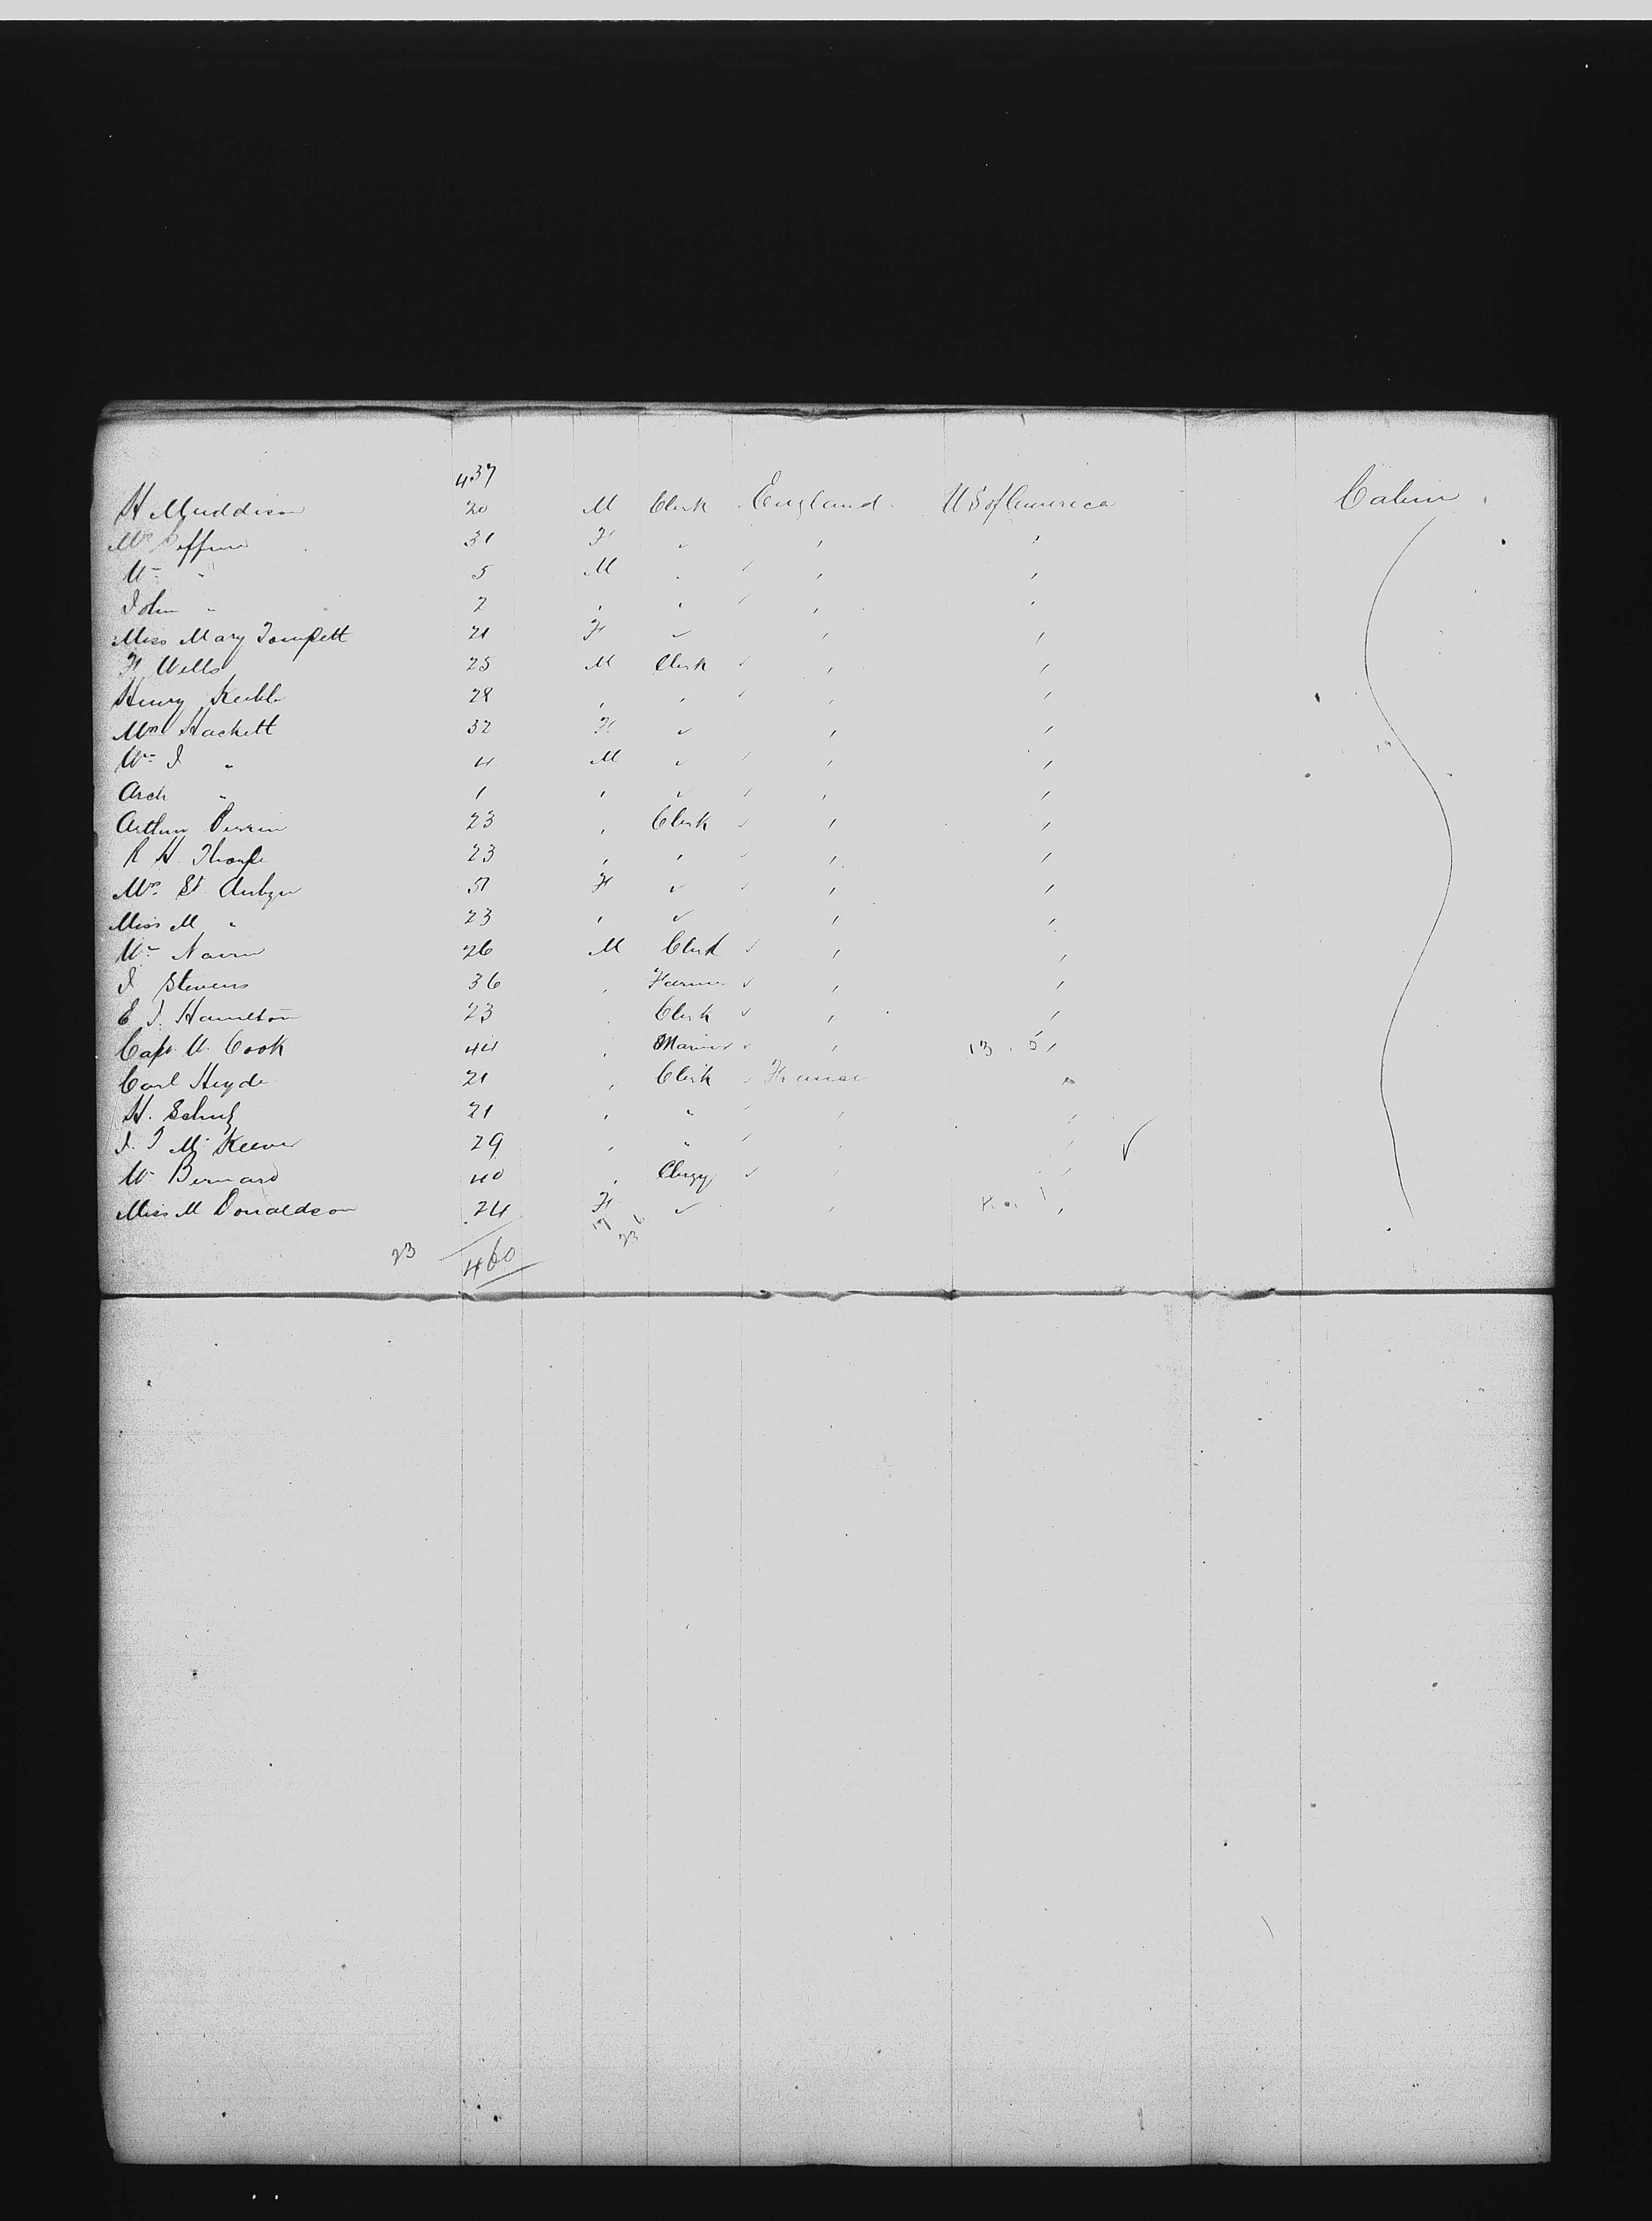 437
H Muddison 20 M Clerk England. U S of America Cabin
Mrs 31 F ✓ , ,
Wm " 5 M , ,
John " 2 , , , ,
Miss Mary 21 F ✓ , ,
F Wells 25 M Clerk ✓ , ,
Henry Keeble 28 , , , ,
Mrs Hackett 32 F ✓ , ,
Wm J " 4 M ✓ , ,
Arch " 1 , ✓ , ,
Arthur Perrin 23 , Clerk ✓ , ,
R H. Thorpe 23 , , ✓ , ,
Mrs. St. Aubyn 51 F ✓ , ,
Miss M " 23 , ✓ , ,
Wm Nairn 26 M Clerk ✓ , ,
J Stevens 36 , Farmer ✓ , ,
E J. Hamilton 23 Clerk ✓ , ,
Capt. W. Cook 44 , Mariner ✓ , 13 . 5 ,
Carl Heyde 21 , Clerk France "
H. Schulz 21 , " , ,
J. J Mc Keever 29 , " , , ✓
Wm Bernard 40 , Clergy ✓ , ,
Miss M Donaldson 24 F ✓ , ,
17
23 6
23 460